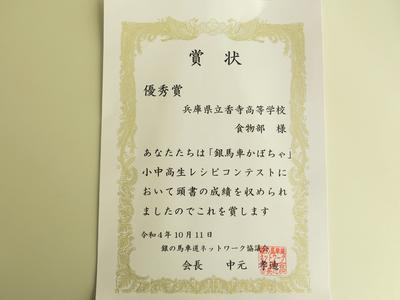 賞状
優秀賞
兵庫県立香寺高等学校
食物部 様
あなたたちは「銀馬車かぼちゃ」
小中高生レシピコンテストに
おいて頭書の成績を収められ
ましたのでこれを賞します
令和4年10月11日
銀の馬車道ネットワーク協議会
会長 中元 孝迪